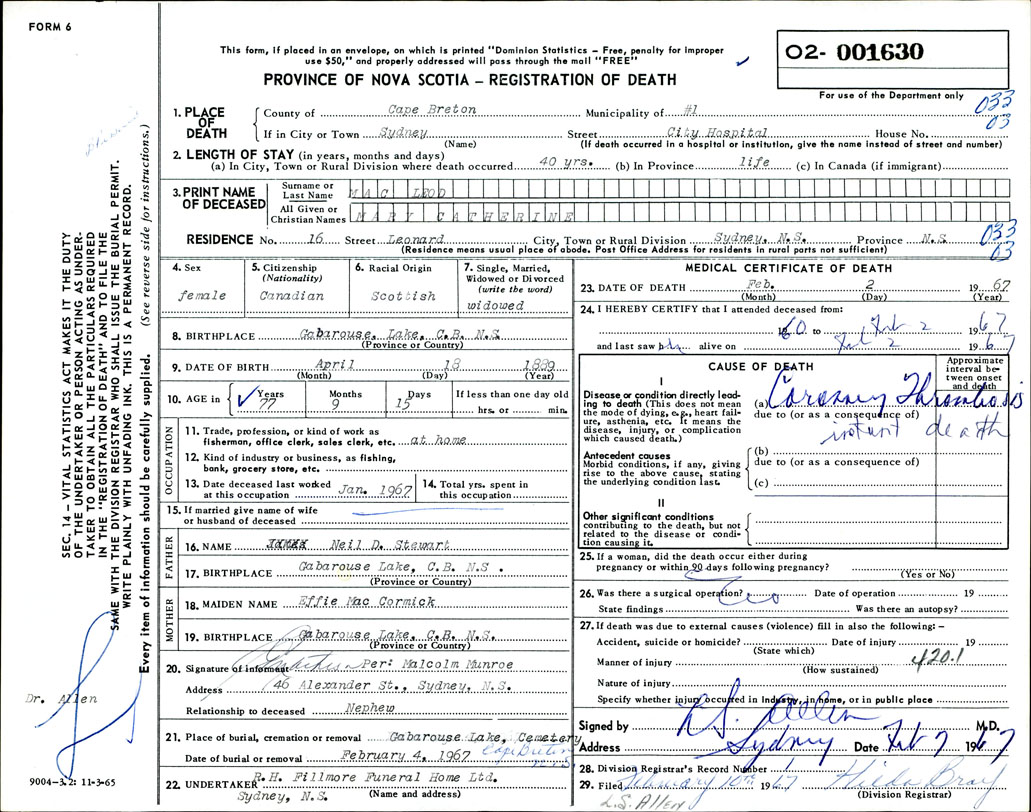 FORM 6
This form, if placed in an envelope, on which is printed "Dominion Statistics – Free, penalty for improper
use $50," and properly addressed will pass through the mail "FREE"
PROVINCE OF NOVA SCOTIA – REGISTRATION OF DEATH
02- 001630
For use of the Department only
033
03
1. PLACE OF DEATH
County of Cape Breton Municipality of #1
If in City or Town Sydney Street City Hospital House No.
(Name) (If death occurred in a hospital or institution, give the name instead of street and number)
2. LENGTH OF STAY (in years, months and days)
(a) In City, Town or Rural Division where death occurred 40 yrs. (b) In Province life (c) In Canada (if immigrant)
3. PRINT NAME OF DECEASED
Surname or Last Name MAC LEOD
All Given or Christian Names MARY CATHERINE
RESIDENCE No. 16 Street Leonard City, Town or Rural Division Sydney, N.S. Province N.S.
(Residence means usual place of abode. Post Office Address for residents in rural parts not sufficient)
033
03
4. Sex
female
5. Citizenship
(Nationality)
Canadian
6. Racial Origin
Scottish
7. Single, Married,
Widowed or Divorced
(write the word)
widowed
8. BIRTHPLACE Gabarouse, Lake, C.B. N.S.
(Province or Country)
9. DATE OF BIRTH April 18 1889
(Month) (Day) (Year)
10. AGE in Years Months Days If less than one day old
77 9 15 hrs. or min.
OCCUPATION
11. Trade, profession, or kind of work as
fisherman, office clerk, sales clerk, etc. at home
12. Kind of industry or business, as fishing,
bank, grocery store, etc.
13. Date deceased last worked
at this occupation Jan. 1967
14. Total yrs. spent in
this occupation
15. If married give name of wife
or husband of deceased
FATHER
16. NAME Neil D. Stewart
17. BIRTHPLACE Gabarouse Lake, C.B. N.S .
(Province or Country)
MOTHER
18. MAIDEN NAME Effie Mac Cormick
19. BIRTHPLACE Gabarouse Lake, C.B. N.S.
(Province or Country)
20. Signature of informant Per: Malcolm Munroe
Address 46 Alexander St., Sydney, N.S.
Relationship to deceased Nephew
21. Place of burial, cremation or removal Gabarouse Lake, Cemetery
Cape Breton
Date of burial or removal February 4, 1967
22. UNDERTAKER R.H. Fillmore Funeral Home Ltd.
Sydney, N.S. (Name and address)
MEDICAL CERTIFICATE OF DEATH
23. DATE OF DEATH Feb. 2 1967
(Month) (Day) (Year)
24. I HEREBY CERTIFY that I attended deceased from:
1960 to Feb 2 1967
and last saw her alive on Feb 2 1967
CAUSE OF DEATH
Approximate
interval be-
tween onset
and death
I
Disease or condition directly lead-
ing to death (This does not mean
the mode of dying, e.g., heart fail-
ure, asthenia, etc. It means the
disease, injury, or complication
which caused death.)
(a) Coronary Thrombosis
due to (or as a consequence of)
instant death
Antecedent causes
Morbid conditions, if any, giving
rise to the above cause, stating
the underlying condition last.
(b)
due to (or as a consequence of)
(c)
II
Other significant conditions
contributing to the death, but not
related to the disease or condi-
tion causing it.
25. If a woman, did the death occur either during
pregnancy or within 90 days following pregnancy?
(Yes or No)
26. Was there a surgical operation? Date of operation 19
State findings Was there an autopsy?
27. If death was due to external causes (violence) fill in also the following: –
Accident, suicide or homicide? Date of injury 19
(State which)
Manner of injury 420.1
(How sustained)
Nature of injury
Specify whether injury occurred in Industry, in home, or in public place
Signed by L.S. Allen M.D.
Address Sydney Date Feb 7 1967
28. Division Registrar's Record Number 1
29. Filed February 10th 1967 Hilda Bray
(Division Registrar)
L.S. Allen
SEC. 14 – VITAL STATISTICS ACT MAKES IT THE DUTY
OF THE UNDERTAKER OR PERSON ACTING AS UNDER-
TAKER TO OBTAIN ALL THE PARTICULARS REQUIRED
IN THE "REGISTRATION OF DEATH" AND TO FILE THE
SAME WITH THE DIVISION REGISTRAR WHO SHALL ISSUE THE BURIAL PERMIT.
WRITE PLAINLY WITH UNFADING INK. THIS IS A PERMANENT RECORD.
Every item of information should be carefully supplied. (See reverse side for instructions.)
Dr. Allen
9004–3.2: 11-3-65